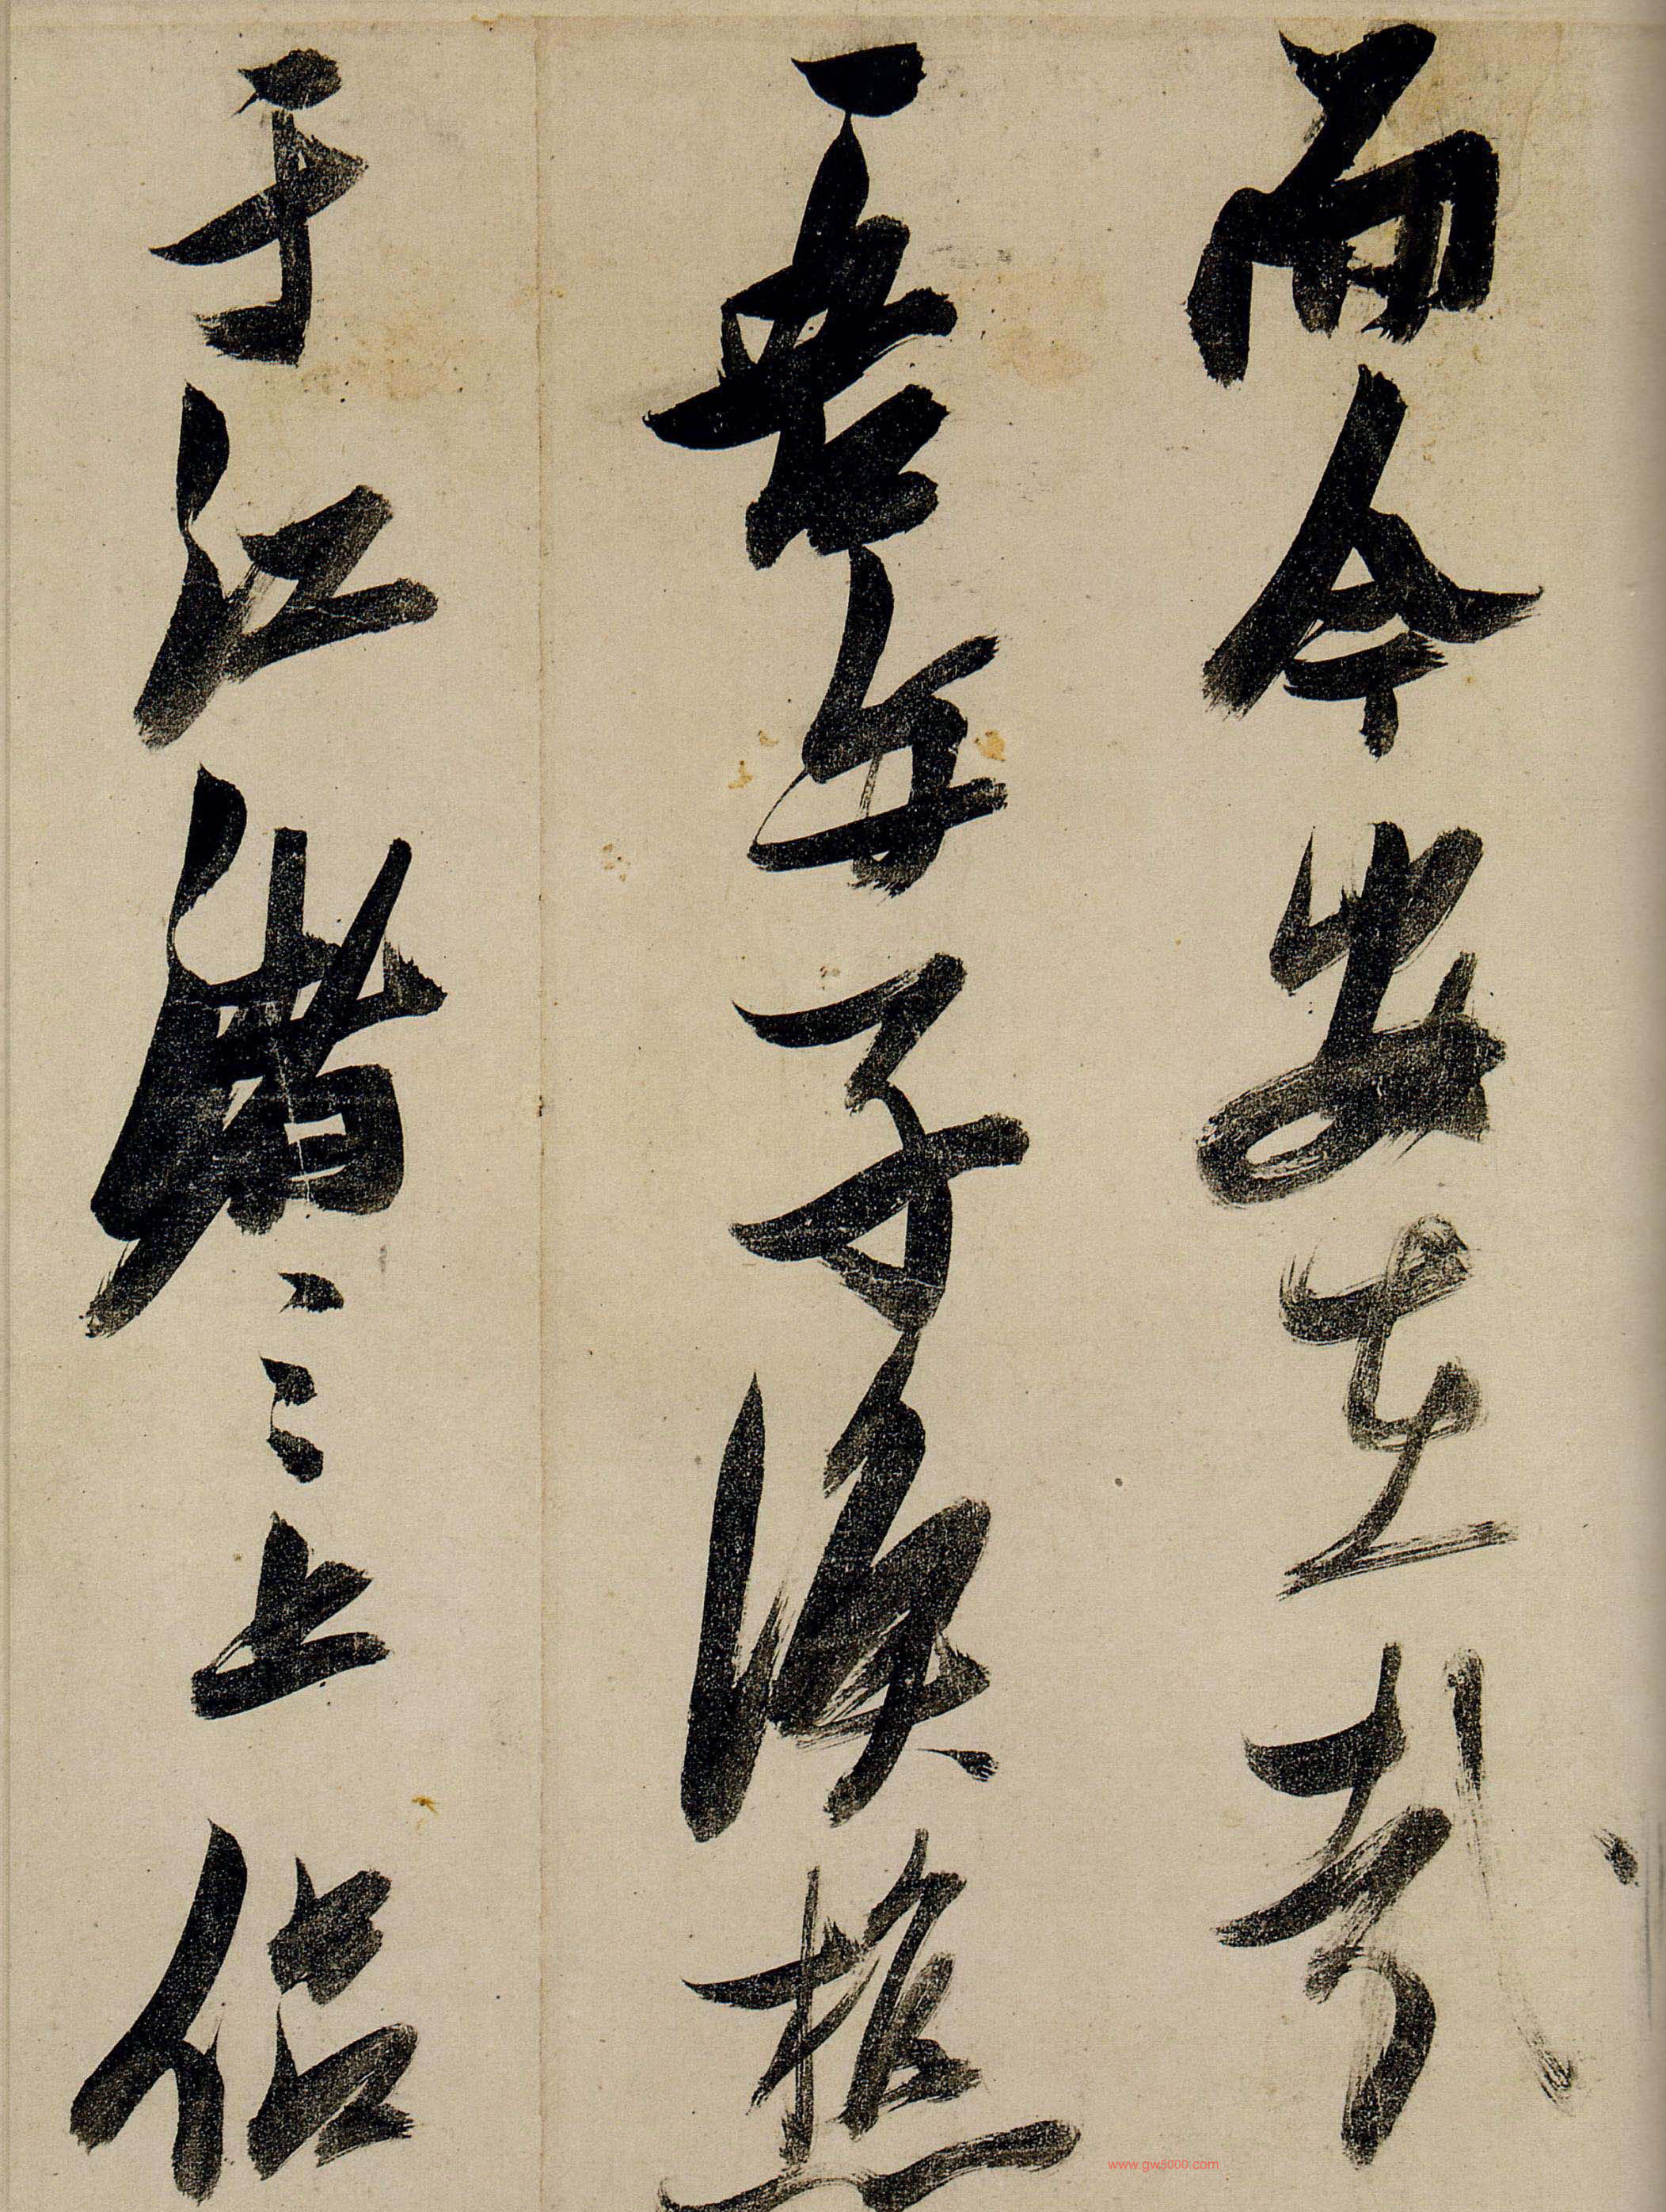 而今安在哉
吾与子漁樵
于江渚之上侣
www.gw5000.com